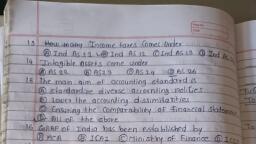 13 How many Income taxes comes under
Ⓐ Ind AS 12 Ⓑ Ind AS 11 Ⓒ Ind AS 13 Ⓓ Ind AS
14 Intangible Assets come under
Ⓐ AS 28 Ⓑ AS 27 Ⓒ AS 24 Ⓓ AS 26
15 The main aim of accounting standard is
Ⓐ standardize diverse accounting policies
Ⓑ Lower the accounting dissimilarities
Ⓒ Ensuring the Comparability of financial Statements
Ⓓ All of the above
16 GAAP of India has been established by
Ⓐ MCA Ⓑ ICAI Ⓒ Ministry of Finance Ⓓ